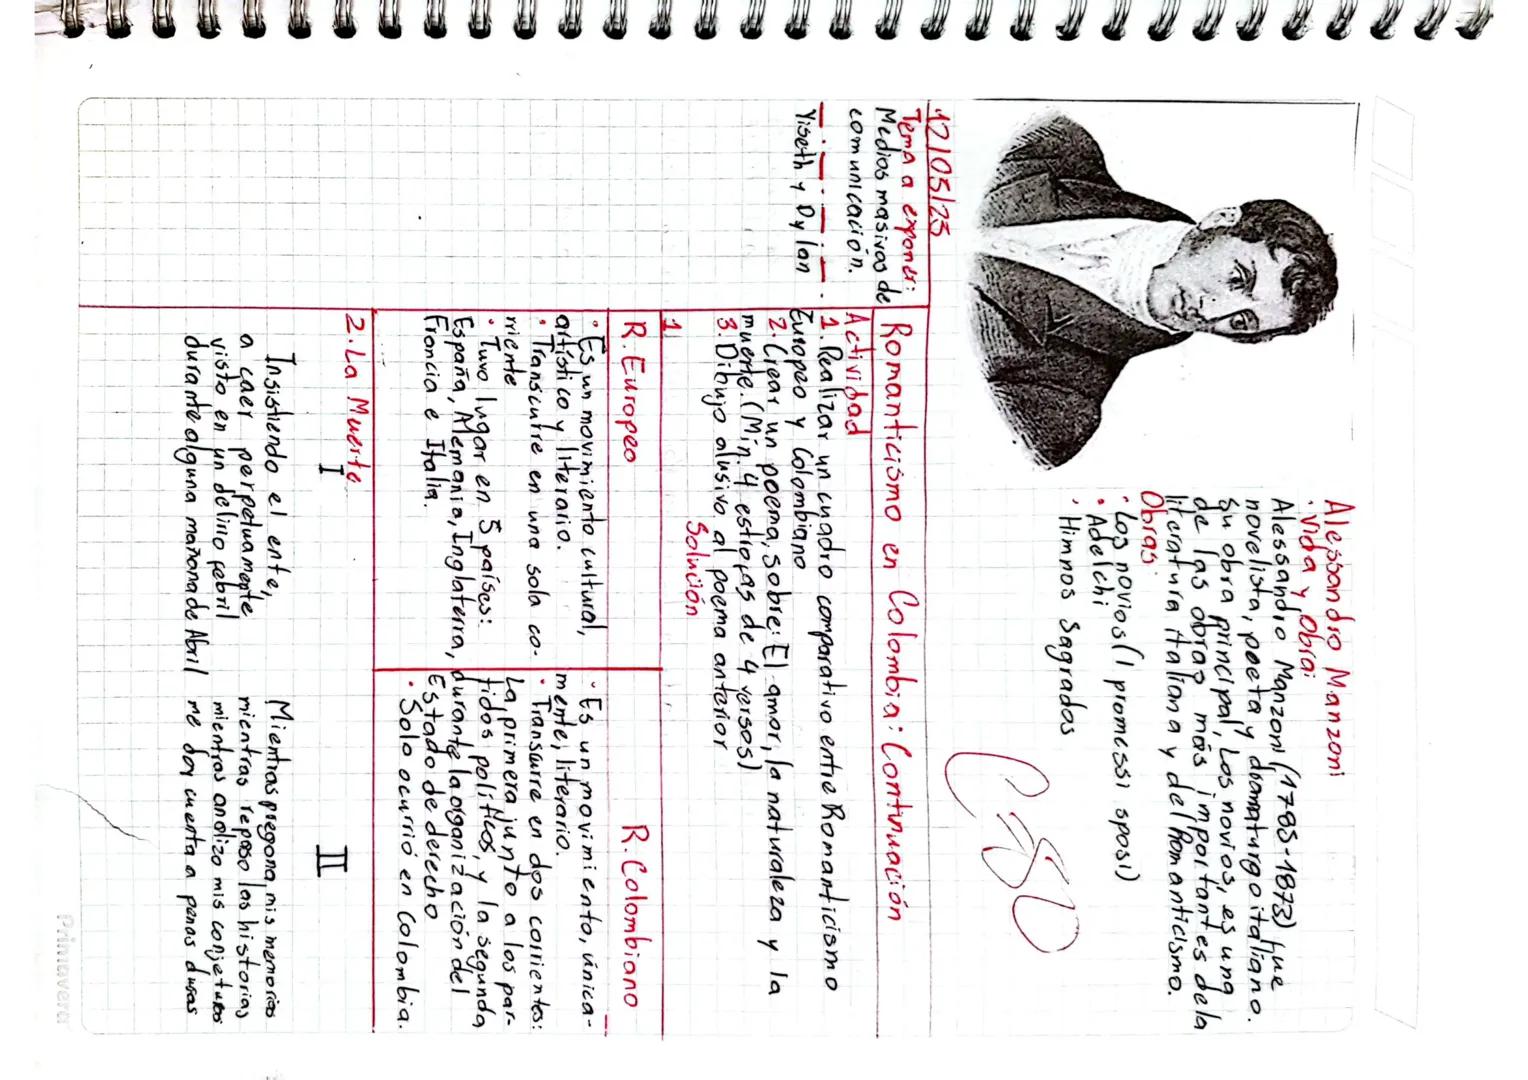 Alessandro Manzoni
· Vida y Obra:
Alessandro Manzoni (1785-1873) fue
novelista, poeta y dramaturgo italiano.
Su obra principal, Los novios, es una
de las obras más importantes de la
literatura italiana y del Romanticismo.
Obras:
· Los novios (I promessi sposi)
· Adelchi
· Himnos Sagrados
12/05/23
Tema a exponer:
Medios masivos de
comunicación.
Yiseth y Dylan
Romanticismo en Colombia: Continuación
Actividad
1. Realizar un cuadro comparativo entre Romanticismo
Europeo y Colombiano
2. Crear un poema, sobre: El amor, la naturaleza y la
muerte. (Mín. 4 estrofas de 4 versos)
3. Dibujo alusivo al poema anterior
Solución
1
R. Europeo
· Es un movimiento cultural,
artístico y literario.
· Transcurre en una sola co-
rriente
· Tuvo lugar en 5 países:
España, Alemania, Inglaterra,
Francia e Italia.
R. Colombiano
· Es un movimiento, única-
mente, literario.
· Transcurre en dos corrientes:
La primera junto a los par-
tidos políticos, y la segunda
durante la organización del
Estado de derecho
· Solo ocurrió en Colombia.
2. La Muerte
I
Insistiendo el ente,
a caer perpetuamente
visto en un delirio febril
durante alguna mañana de Abril
II
Mientras pregona mis memorias
mientras repaso las historias
mientras analizo mis conjeturas
me doy cuenta a penas duras
Primavera